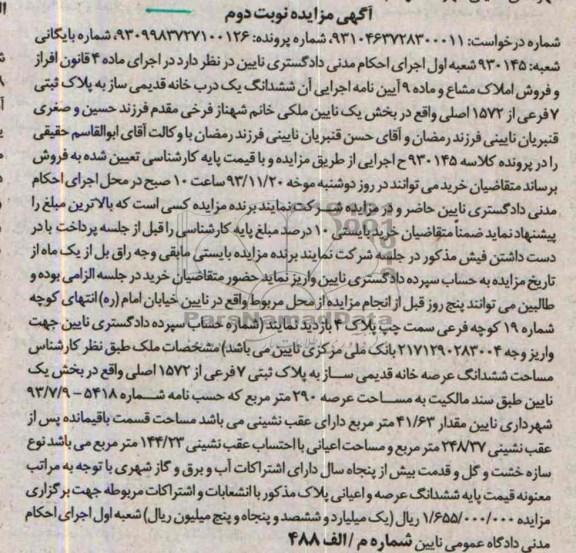 آگهی مزایده نوبت دوم
شماره درخواست: ۹۳۱۰۴۶۳۷۲۸۳۰۰۰۱۱، شماره پرونده: ۹۳۰۹۹۸۳۷۲۷۱۰۰۱۲۶، شماره بایگانی
شعبه: ۹۳۰۱۴۵ شعبه اول اجرای احکام مدنی دادگستری نایین در نظر دارد در اجرای ماده ۴ قانون افراز
و فروش املاک مشاع و ماده ۹ آیین نامه اجرایی آن ششدانگ یک درب خانه قدیمی ساز به پلاک ثبتی
۷ فرعی از ۱۵۷۲ اصلی واقع در بخش یک نایین ملکی خانم شهناز فرخی مقدم فرزند حسین و صغری
قنبریان نایینی فرزند رمضان و آقای حسن قنبریان نایینی فرزند رمضان با وکالت آقای ابوالقاسم حقیقی
را در پرونده کلاسه ۹۳۰۱۴۵ ح اجرایی از طریق مزایده و با قیمت پایه کارشناسی تعیین شده به فروش
برساند متقاضیان خرید می توانند در روز دوشنبه موخه ۹۳/۱۱/۲۰ ساعت ۱۰ صبح در محل اجرای احکام
مدنی دادگستری نایین حاضر و در مزایده شرکت نمایند برنده مزایده کسی است که بالاترین مبلغ را
پیشنهاد نماید ضمناً متقاضیان خرید بایستی ۱۰ درصد مبلغ پایه کارشناسی را قبل از جلسه پرداخت با در
دست داشتن فیش مذکور در جلسه شرکت نمایند برنده مزایده بایستی مابقی وجه راق بل از یک ماه از
تاریخ مزایده به حساب سپرده دادگستری نایین واریز نماید حضور متقاضیان خرید در جلسه الزامی بوده و
طالبین می توانند پنج روز قبل از انجام مزایده از محل مربوط واقع در نایین خیابان امام (ره) انتهای کوچه
شماره ۱۹ کوچه فرعی سمت چپ پلاک ۴ بازدید نمایند (شماره حساب سپرده دادگستری نایین جهت
واریز وجه ۲۱۷۱۲۹۰۲۸۳۰۰۴ بانک ملی مرکزی نایین می باشد) مشخصات ملک طبق نظر کارشناس
مساحت ششدانگ عرصه خانه قدیمی ساز به پلاک ثبتی ۷ فرعی از ۱۵۷۲ اصلی واقع در بخش یک
نایین طبق سند مالکیت به مساحت عرصه ۲۹۰ متر مربع که حسب نامه شماره ۵۴۱۸ - ۹۳/۷/۹
شهرداری نایین مقدار ۴۱/۶۳ متر مربع دارای عقب نشینی می باشد مساحت قسمت باقیمانده پس از
عقب نشینی ۲۴۸/۳۷ متر مربع و مساحت اعیانی با احتساب عقب نشینی ۱۴۴/۲۳ متر مربع می باشد نوع
سازه خشت و گل و قدمت بیش از پنجاه سال دارای اشتراکات آب و برق و گاز شهری با توجه به مراتب
معنونه قیمت پایه ششدانگ عرصه و اعیانی پلاک مذکور با انشعابات و اشتراکات مربوطه جهت برگزاری
مزایده ۱/۶۵۵/۰۰۰/۰۰۰ ریال (یک میلیارد و ششصد و پنجاه و پنج میلیون ریال) شعبه اول اجرای احکام
مدنی دادگاه عمومی نایین شماره م / الف ۴۸۸
ParsNamadData